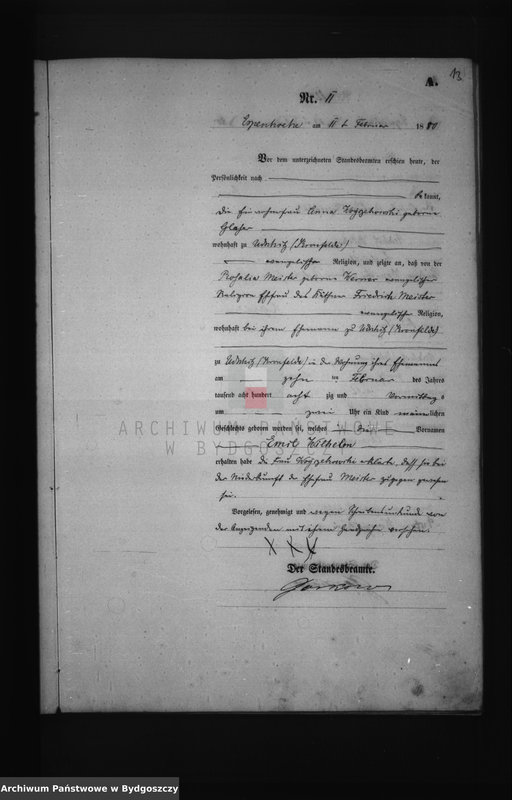 13
A.
Nr. 11
am 11 t Februar 1880
Vor dem unterzeichneten Standesbeamten erschien heute, der
Persönlichkeit nach
bekannt,
die Einwohnerfrau Anna geborene
Glaser
wohnhaft zu
evangelischer Religion, und zeigte an, daß von der
Rosalia Meister geborene Werner evangelischer
Religion Ehefrau des Friedrich Meister
evangelischer Religion,
wohnhaft bei ihrem Ehemanne zu
zu in der Wohnung ihres Ehemannes
am zehn ten Februar des Jahres
tausend acht hundert acht zig und Vormittags
um zwei Uhr ein Kind männlichen
Geschlechts geboren worden sei, welches die Vornamen
Emil Wilhelm
erhalten habe die Frau erklärte, daß sie bei
der Niederkunft der Ehefrau Meister zugegen gewesen
sei.
Vorgelesen, genehmigt und wegen Schreibensunkunde von
der Anzeigenden mit ihrem Handzeichen versehen.
X X X
Der Standesbeamte.
ARCHIWUM PAŃSTWOWE
W BYDGOSZCZY
Archiwum Państwowe w Bydgoszczy